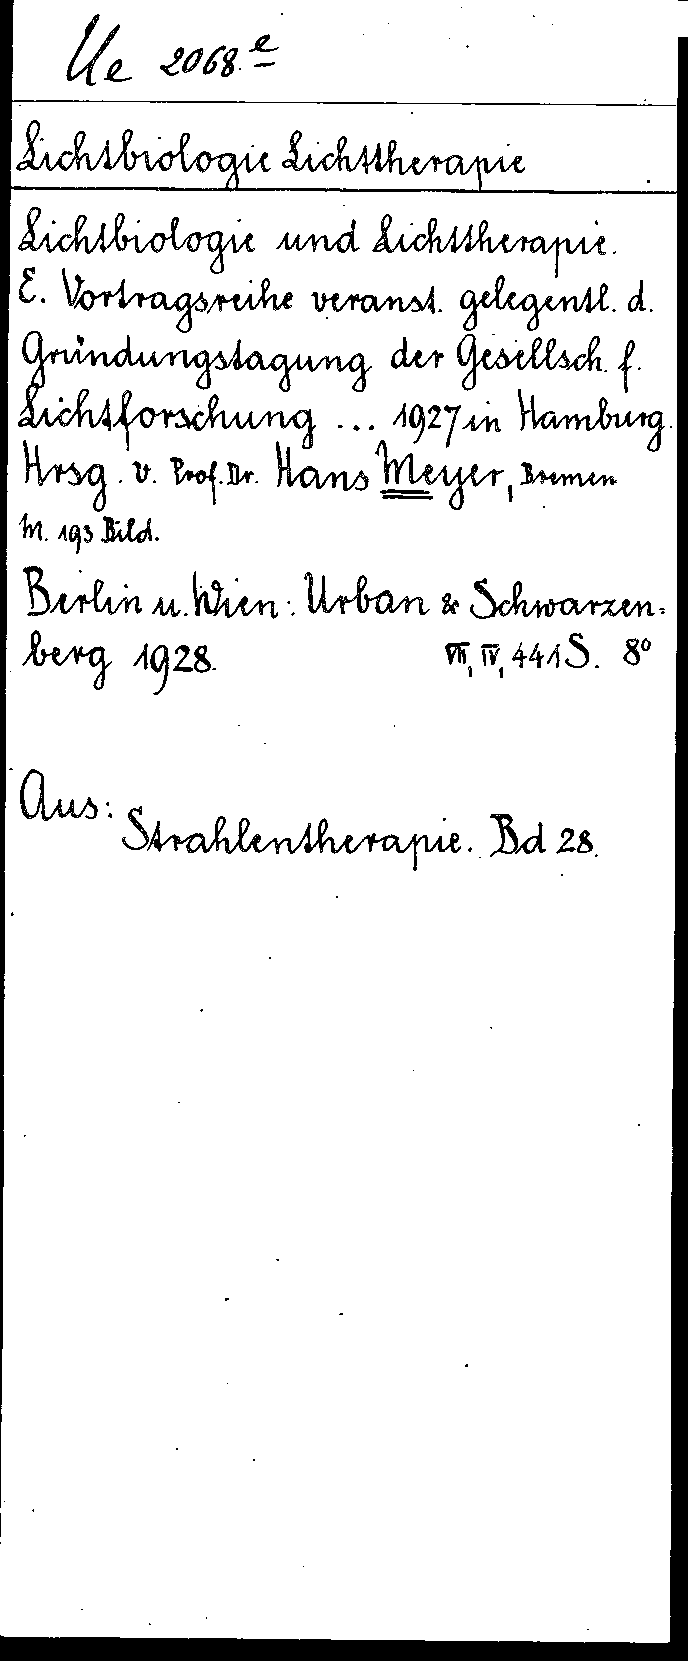 Ue 2068.e
Lichtbiologie Lichttherapie
Lichtbiologie und Lichttherapie.
E. Vortragsreihe veranst. gelegentl. d.
Gründungstagung der Gesellsch. f.
Lichtforschung ... 1927 in Hamburg.
Hrsg. v. Prof. Dr. Hans Meyer, Bremen
M. 193 Bild.
Berlin u. Wien: Urban & Schwarzen-
berg 1928. VII, IV, 441 S. 8°
Aus:
Strahlentherapie. Bd 28.